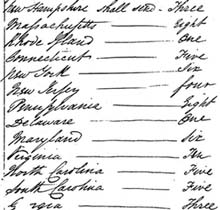 New Hampshire shall send Three
Massachusetts Eight
Rhode Island One
Connecticut Five
New York Six
New Jersey four
Pennsylvania Eight
Delaware One
Maryland Six
Virginia Ten
North Carolina Five
South Carolina Five
Georgia Three